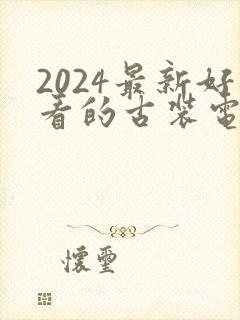 2024最新好
看的古装電
懷璽